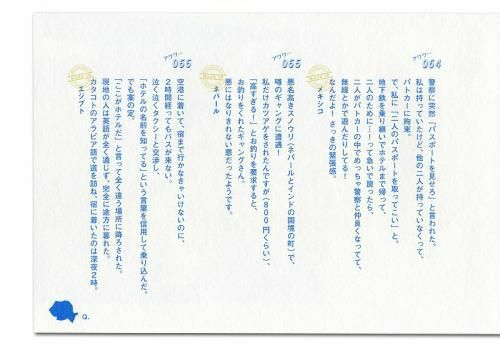 アワワー
064
警察に突然「パスポートを見せろ」と言われた。
私は持っていたけど、他の二人が持っていなくって、
パトカーに拘束。
で、私に「二人のパスポートを取ってこい」と。
地下鉄を乗り継いでホテルまで帰って、
二人のために…って急いで戻ったら、
二人がパトカーの中でめっちゃ警察と仲良くなってて、
無線とかで遊んだりしてる!
なんだよ!さっきの緊張感。
メキシコ
アワワー
065
悪名高きスノウリ(ネパールとインドの国境の町)で、
噂のギャングに遭遇!
私だけカツアゲされたんですが(800円くらい)、
「高すぎる!」とお釣りを要求すると、
お釣りをくれたギャングさん。
悪にはなりきれない悪だったようです。
ネパール
アワワー
066
空港に着いて、宿まで行かなきゃいけないのに、
2時間経ってもバスが来ない。
泣く泣くタクシーと交渉し、
「ホテルの名前を知ってる」という言葉を信用して乗り込んだ。
でも案の定。
「ここがホテルだ」と言って全く違う場所に降ろされた。
現地の人は英語が全く通じず、完全に途方に暮れた。
カタコトのアラビア語で道を訊ね、宿に着いたのは深夜2時。
エジプト
Q.